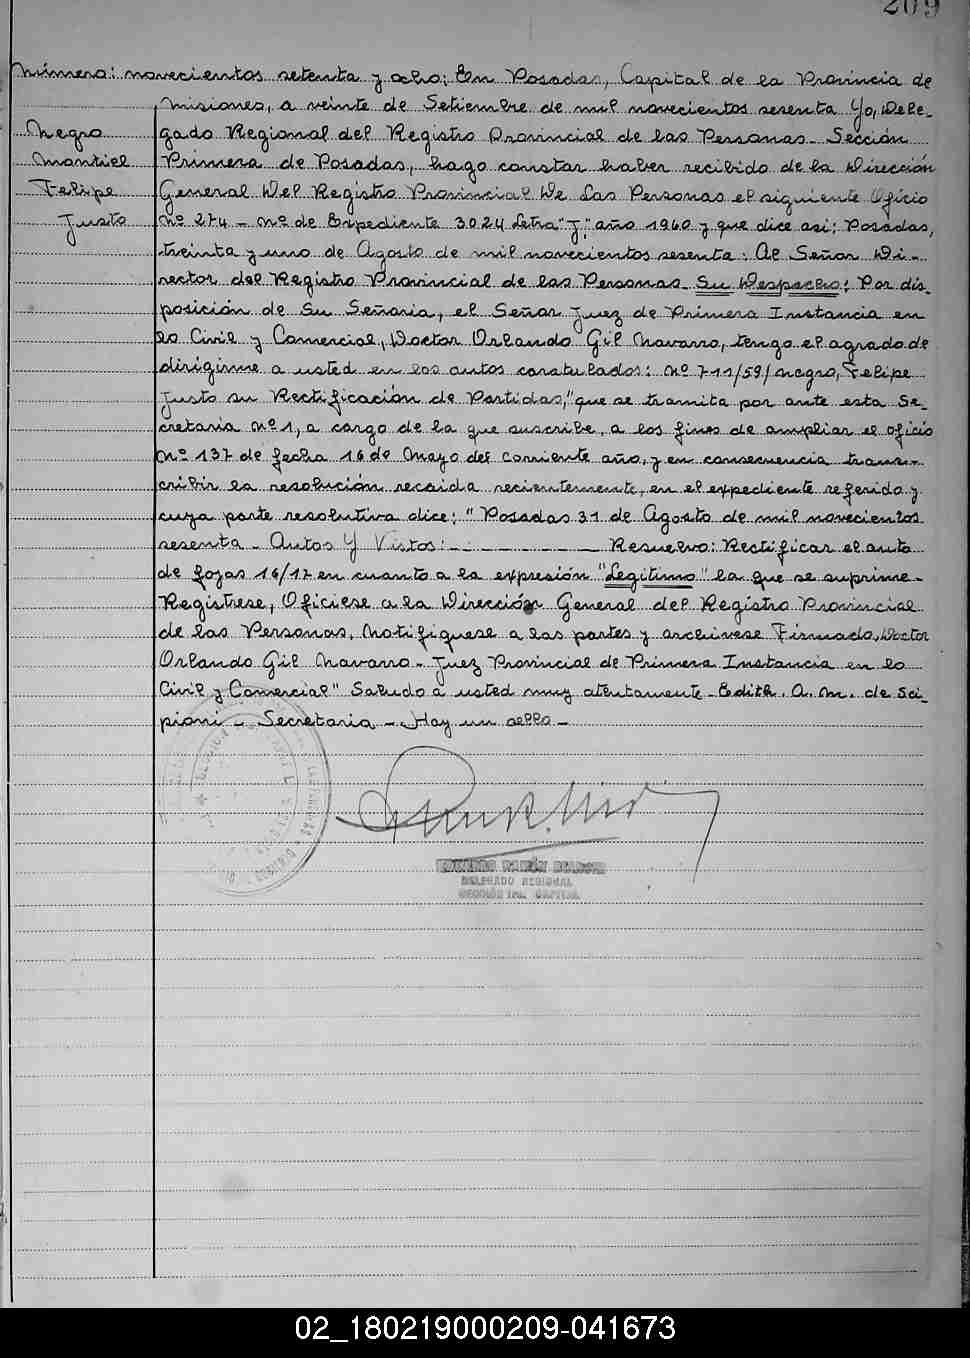 209
Número: novecientos setenta y ocho: En Posadas, Capital de la Provincia de
Misiones, a veinte de Setiembre de mil novecientos sesenta Yo, Dele-
Negro
gado Regional del Registro Provincial de las Personas - Sección
Montiel
Primera de Posadas, hago constar haber recibido de la Dirección
Felipe
General Del Registro Provincial De Las Personas el siguiente Oficio
Justo
Nº 274 - nº de Expediente 3024 Letra "J" año 1960 y que dice asi: Posadas,
treinta y uno de Agosto de mil novecientos sesenta: Al Señor Di-
rector del Registro Provincial de las Personas - Su Despacho: Por dis-
posición de Su Señoria, el Señor Juez de Primera Instancia en
lo Civil y Comercial, Doctor Orlando Gil Navarro, tengo el agrado de
dirigirme a usted en los autos caratulados: Nº 711/59/ negro, Felipe
Justo su Rectificación de Partidas," que se tramita por ante esta Se-
cretaria Nº 1, a cargo de la que suscribe, a los fines de ampliar el oficio
Nº 137 de fecha 16 de Mayo del corriente año, y en consecuencia trans-
cribir la resolución recaida recientemente, en el expediente referido y
cuya parte resolutiva dice: "Posadas 31 de Agosto de mil novecientos
sesenta - Autos Y Vistos: - . - . - . - Resuelvo: Rectificar el auto
de fojas 16/17 en cuanto a la expresión "Legitimo" la que se suprime -
Registrese, Oficiese a la Dirección General del Registro Provincial
de las Personas, Notifiquese a las partes y archivese Firmado, Doctor
Orlando Gil Navarro - Juez Provincial de Primera Instancia en lo
Civil y Comercial" Saludo a usted muy atentamente - Edith. A. M. de Sci-
pioni - Secretaria - Hay un sello -
RAMÓN
DELEGADO REGIONAL
SECCIÓN 1ra. CAPITAL
02_180219000209-041673